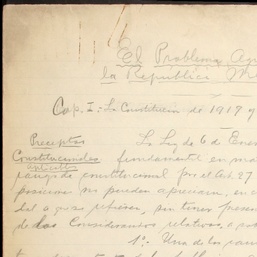 El Problema Ag
la República M
Cap. I: La Constitución de 1917 y
Preceptos
Constitucionales
anteriores
La Ley de 6 de Ener
fundamental en ma
rango de constitucional por el Art. 27
posición ni pueden apreciar, en
a que refieran, sin tener presen
de las Considerandos relativos, a
1º. Una de las